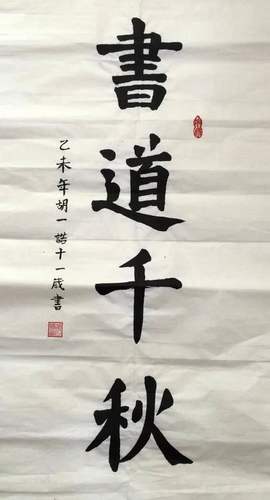 書道千秋
乙未年胡一諾十一歲書